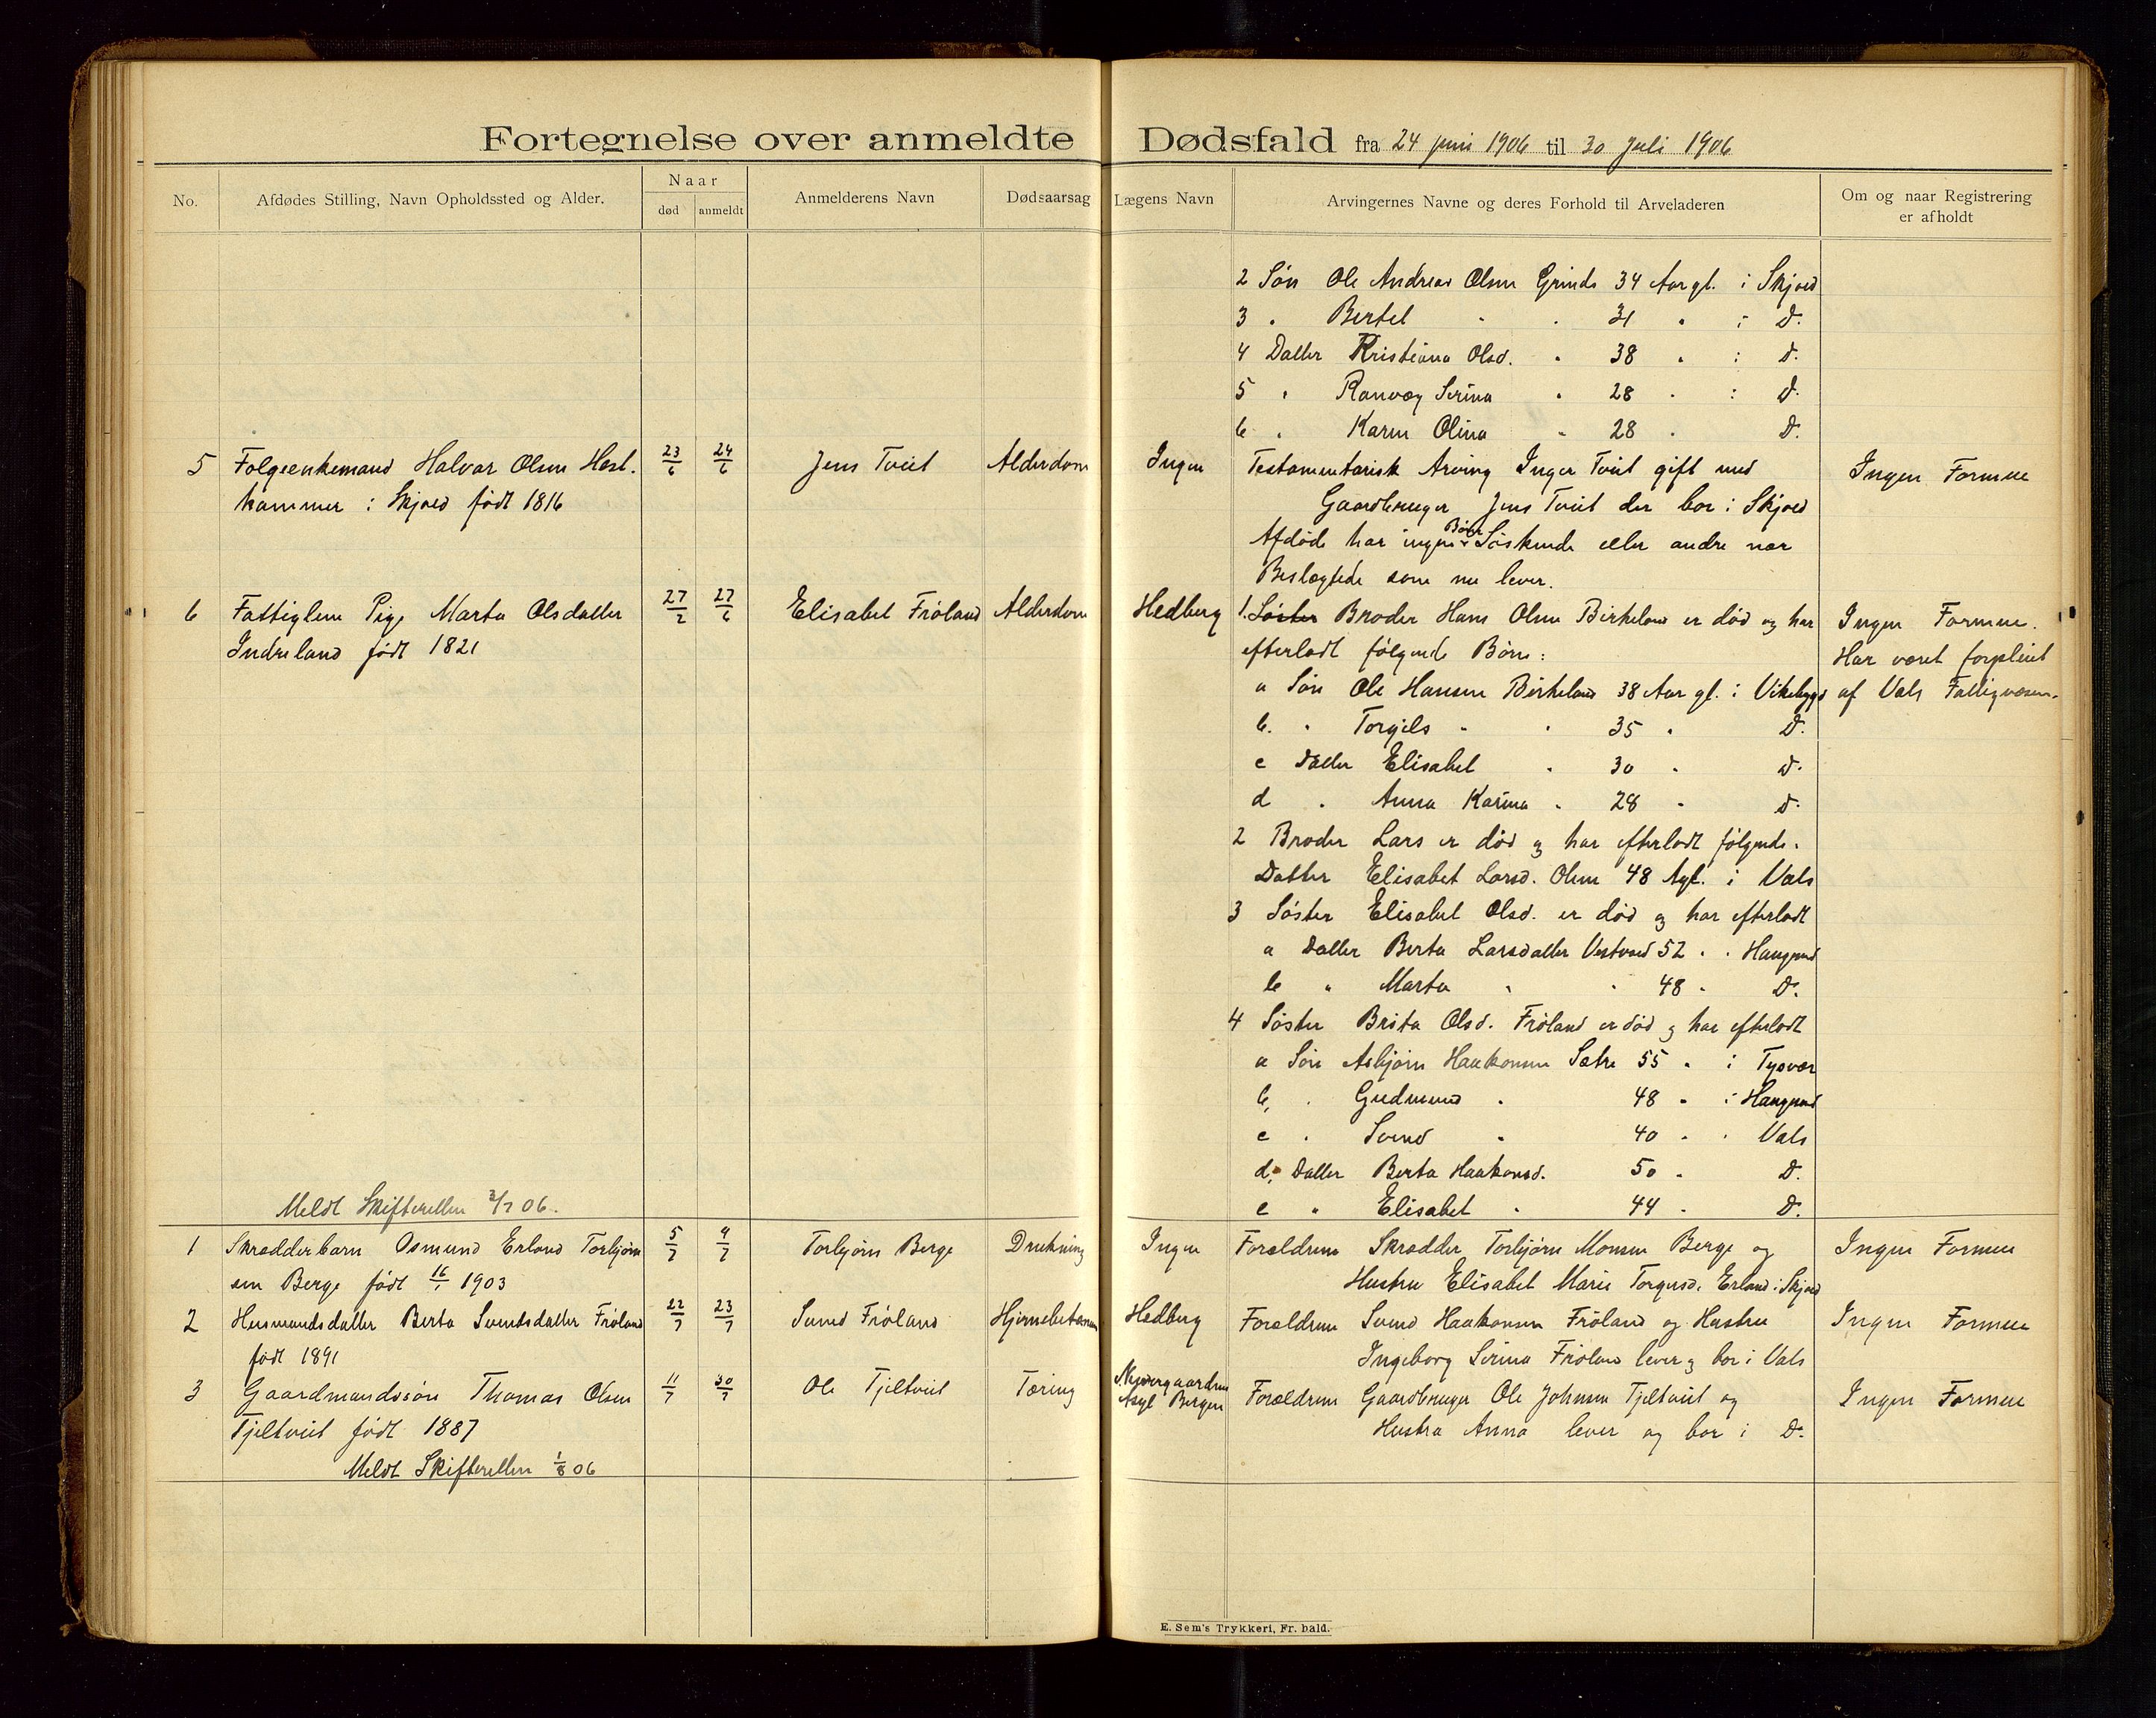 Fortegnelse over anmeldte Dødsfald fra 24 juni 1906 til 30 juli 1906
No.
Afdødes Stilling, Navn Opholdssted og Alder.
Naar
død
anmeldt
Anmelderens Navn
Dødsaarsag
Lægens Navn
Arvingernes Navne og deres Forhold til Arveladeren
Om og naar Registrering
er afholdt
2 Søn Ole Andreas Olsen Grinde 34 Aar gl. i Skjold
3 " Bertel " " 31 " i D.
4 Datter Kristiana Olsd. " 38 " i D.
5 " Ranveg Serina " 28 " i D.
6 " Karen Olina " 28 " D.
5 Folgeenkemand Halvar Olsen Hest- 23/6 24/6 Jens Tveit Alderdom Ingen Testamentarisk Arving Inger Tveit gift med Ingen Formue
hammer i Skjold født 1816 Gaardbruger Jens Tveit der bor i Skjold
Afdøde har ingen Børn Søskende eller andre nær
Beslægtede som nu lever.
6 Fattiglem Pige Marta Olsdatter 27/2 27/6 Elisabet Frøland Alderdom Hedberg 1. Søster Broder Hans Olsen Birkeland er død og har Ingen Formue.
Indreland født 1821 efterladt følgende Børn: Har været forpleiet
a Søn Ole Hansen Birkeland 38 Aar gl. i Vikebygd af Vats Fattigvæsen.
b. " Torgils " " 35 " D.
c Datter Elisabet " 30 " D.
d " Anna Karina " 28 " D.
2 Broder Lars er død og har efterladt følgende.
Datter Elisabet Larsd. Olsen 48 Agl. i Vats
3 Søster Elisabet Olsd. er død og har efterladt
a Datter Berta Larsdatter 52 " "
b " Marta " " 48 " D.
4 Søster Brita Olsd. Frøland er død og har efterladt
a Søn Asbjørn Haakonsen Sætre 55 " i Tysvær
b, " Gudmund " 48 " i
c " Svend " 40 " " Vats
d; Datter Berta Haakonsd. 50 " D.
e " Elisabet " 44 " D.
Meldt Skifteretten 2/7 06.
1 Skrædderbarn Osmund Erland Torbjørn 5/7 9/7 Torbjørn Berge Drukning Ingen Forældrene Skrædder Torbjørn Monsen Berge og Ingen Formue
sen Berge født 16/1 1903 Hustru Elisabet Marie Torgersd. Erland i Skjold
2 Husmandsdatter Berta Svendsdatter Frøland 22/7 23/7 Svend Frøland Hjernebetændelse Hedberg Forældrene Svend Haakonsen Frøland og Hustru Ingen Formue
født 1891 Ingeborg Serina Frøland lever og bor i Vats
3 Gaardmandssøn Thomas Olsen 11/7 30/7 Ole Tjeltveit Tæring Asyl Bergen Forældrene Gaardbruger Ole Johnsen Tjeltveit og Ingen Formue
Tjeltveit født 1887 Hustru Anna lever og bor i D.
Meldt Skifteretten 1/8 06
E. Sem's Trykkeri, Fr. hald.